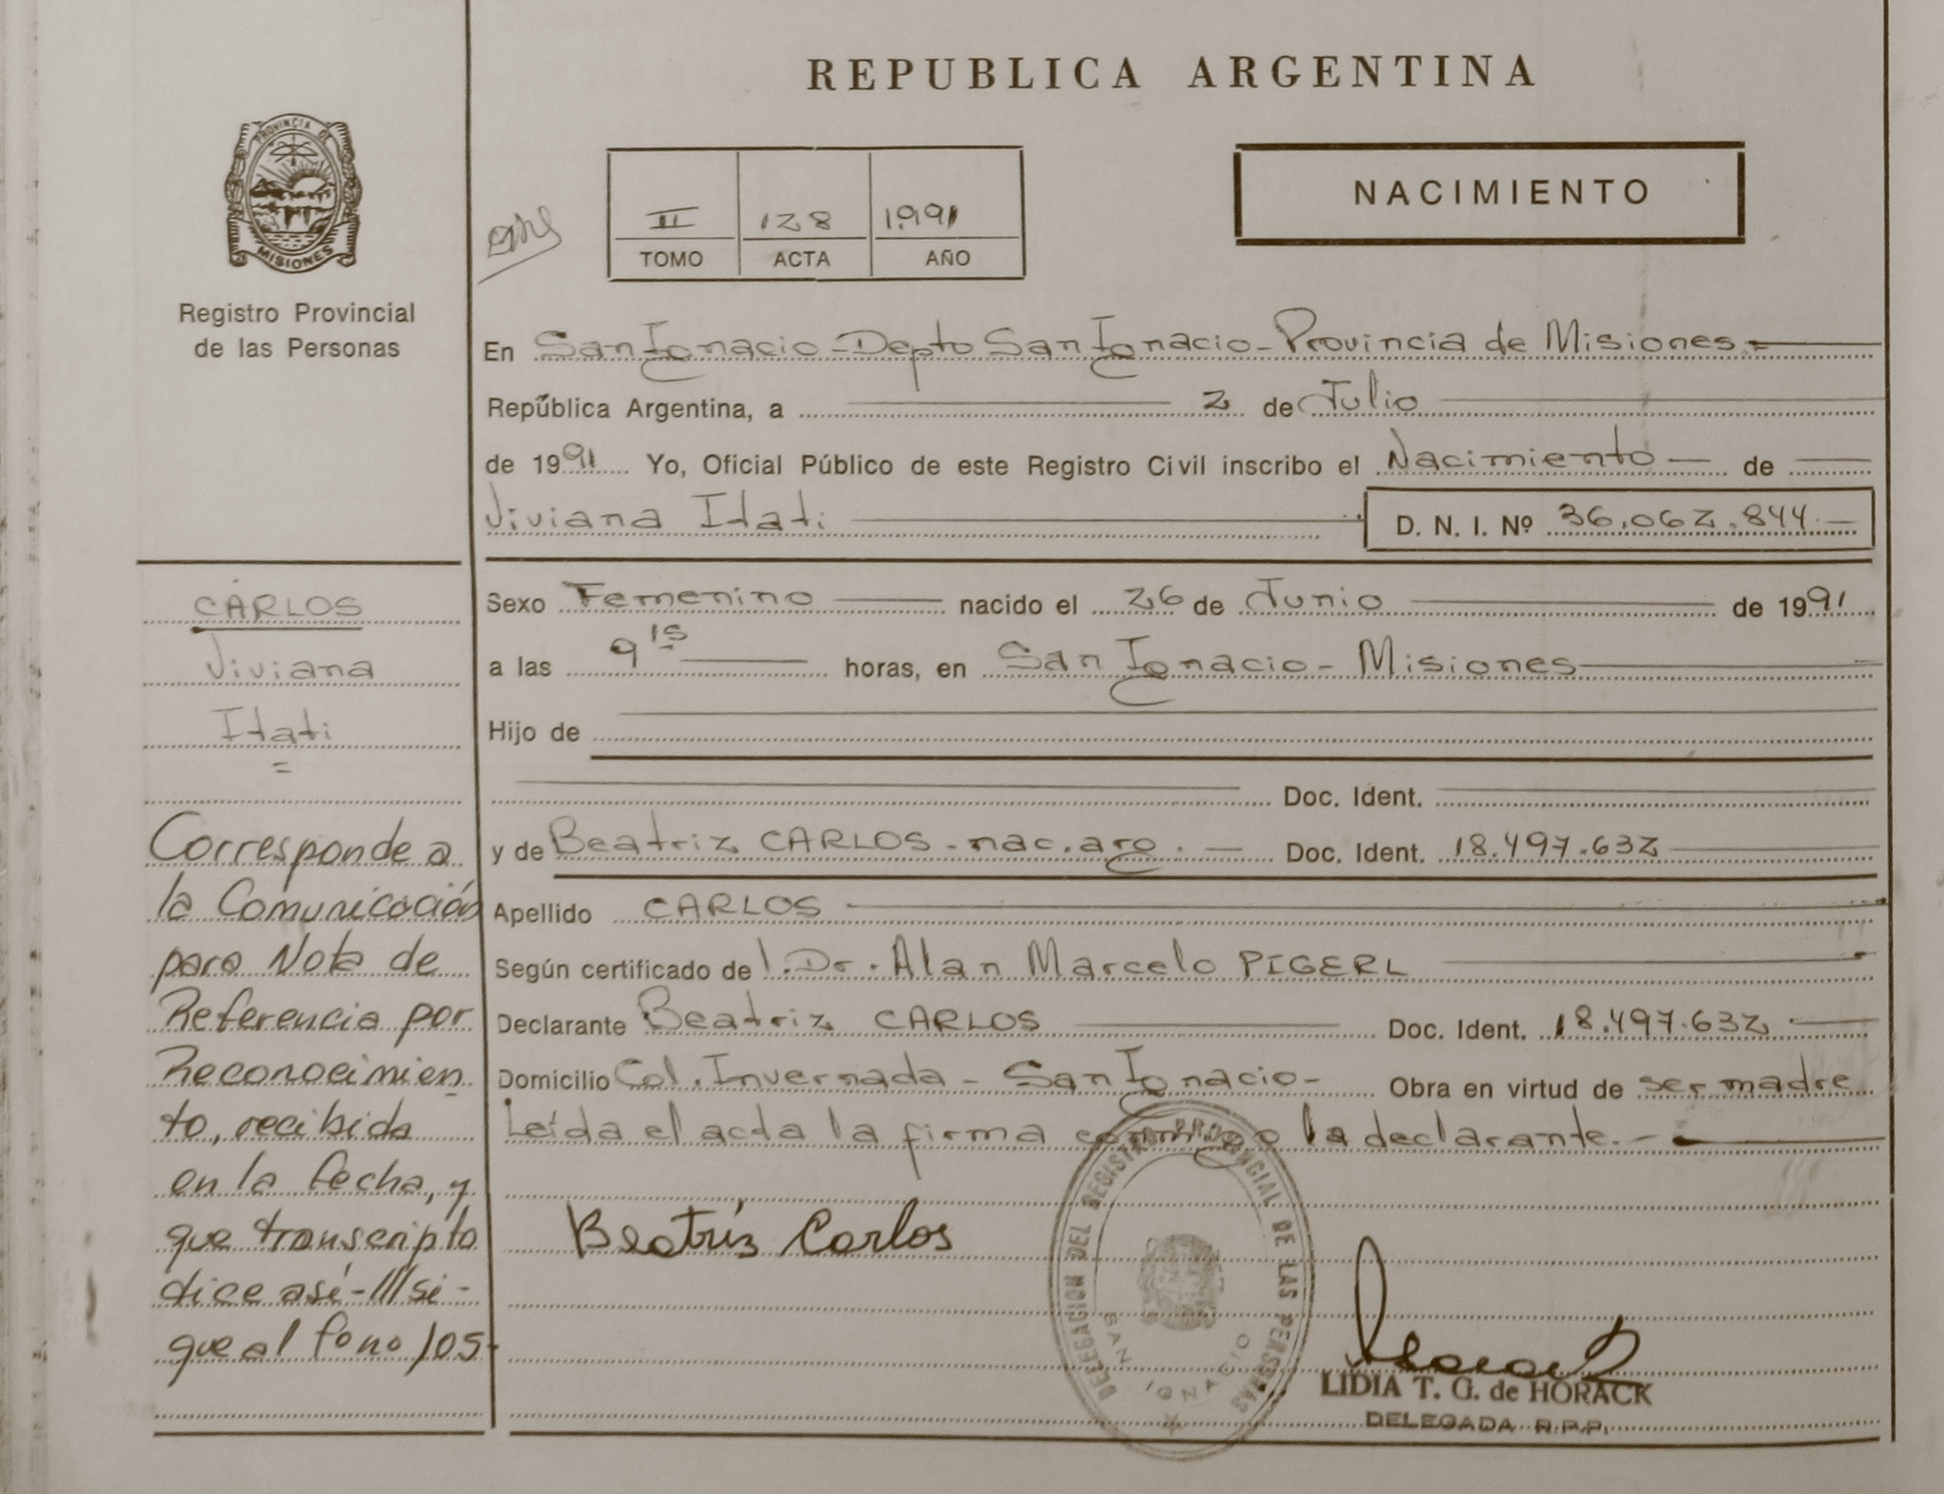 REPUBLICA ARGENTINA
PROVINCIA DE
MISIONES
Registro Provincial
de las Personas
NACIMIENTO
II 128 1991
TOMO ACTA AÑO
En San Ignacio - Depto San Ignacio - Provincia de Misiones
República Argentina, a 2 de Julio
de 1991 Yo, Oficial Público de este Registro Civil inscribo el Nacimiento de
Viviana Itati D. N. I. Nº 36.062.844
Sexo Femenino nacido el 26 de Junio de 1991
a las 9 15 horas, en San Ignacio - Misiones
Hijo de
Doc. Ident.
y de Beatriz CARLOS - nac. arg. Doc. Ident. 18.497.632
Apellido CARLOS
Según certificado de l. Dr. Alan Marcelo PIGERL
Declarante Beatriz CARLOS Doc. Ident. 18.497.632
Domicilio Col. Invernada - San Ignacio - Obra en virtud de ser madre
Leída el acta la firma conmigo la declarante.
Beatríz Carlos
DELEGACION DEL REGISTRO PROVINCIAL DE LAS PERSONAS
SAN IGNACIO
LIDIA T. G. de HORACK
DELEGADA R.P.P.
CARLOS
Viviana
Itati
=
Corresponde a
la Comunicación
para Nota de
Referencia por
Reconocimien
to, recibida
en la fecha, y
que transcripto
dice así-///si-
gue al fono 105-